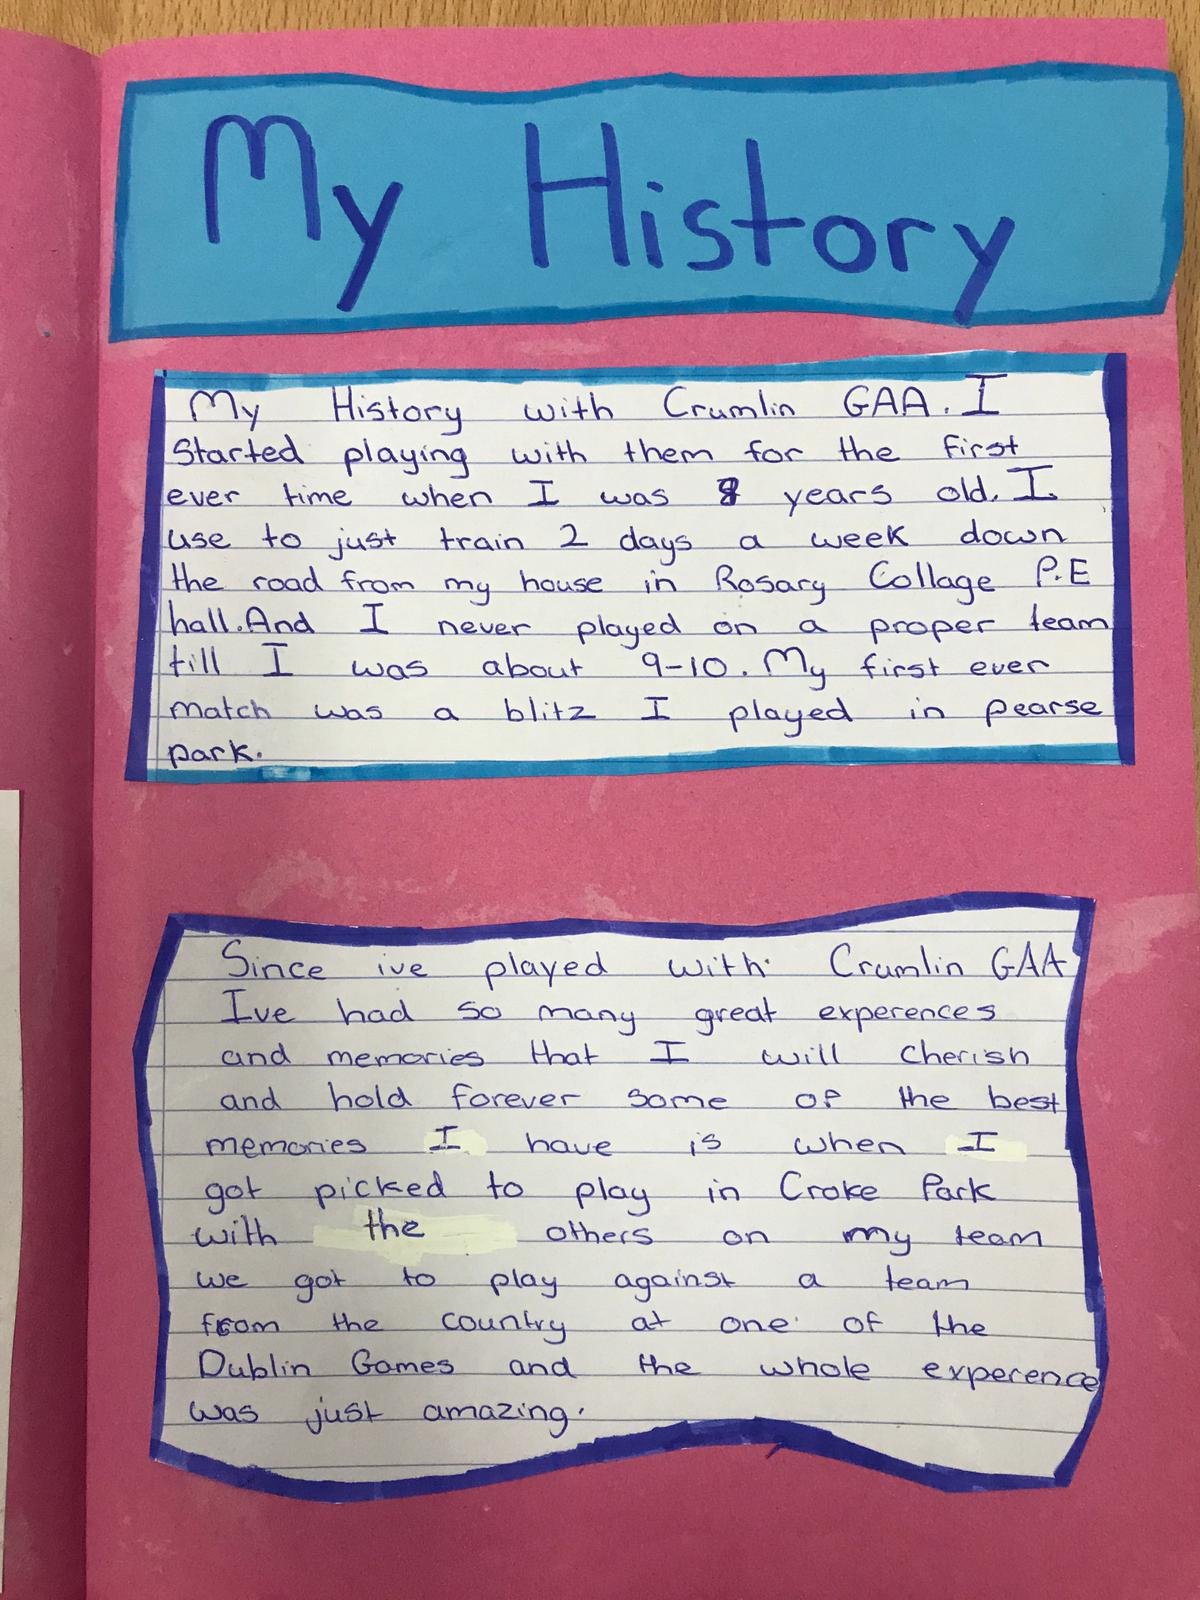 My History
My History with Crumlin GAA. I
Started playing with them for the first
ever time when I was 8 years old. I
use to just train 2 days a week down
the road from my house in Rosary Collage P.E
hall. And I never played on a proper team
till I was about 9-10. My first ever
match was a blitz I played in pearse
park.
Since ive played with Crumlin GAA
Ive had so many great experences
and memories that I will cherish
and hold forever some of the best
memories I have is when I
got picked to play in Croke Park
with the others on my team
we got to play against a team
from the country at one of the
Dublin Games and the whole experence
was just amazing.